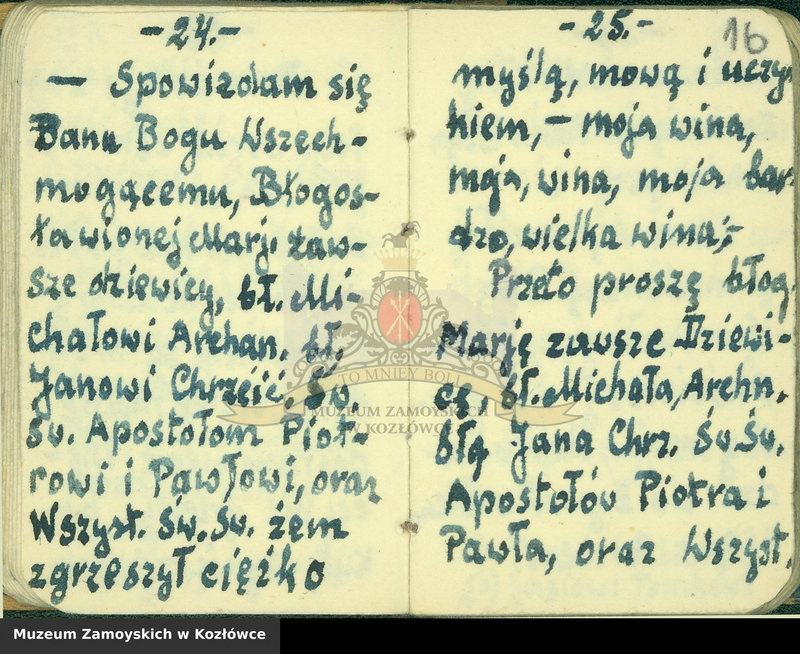 -24.-
— Spowiadam się
Panu Bogu Wszech-
mogącemu, Błogos-
ławionej Marji zaw-
sze dziewicy, bł. Mi-
chałowi Archan. bł.
Janowi Chrzcić. Św.
Św. Apostołom Piot-
rowi i Pawłowi, oraz
Wszyst. Św. Św. żem
zgrzeszył ciężko
-25.-
16
myślą, mową i uczyn
kiem, - moja wina,
moja, wina, moja bar-
dzo, wielka wina,-
Przeto proszę błog.
Marję zawsze Dziewi-
cę, bł. Michała, Archn.
błg Jana Chrz. Św. Św.
Apostołów Piotra i
Pawła, oraz Wszyst.
TO MNIEY BOLI
MUZEUM ZAMOYSKICH
W KOZŁÓWCE
Muzeum Zamoyskich w Kozłówce